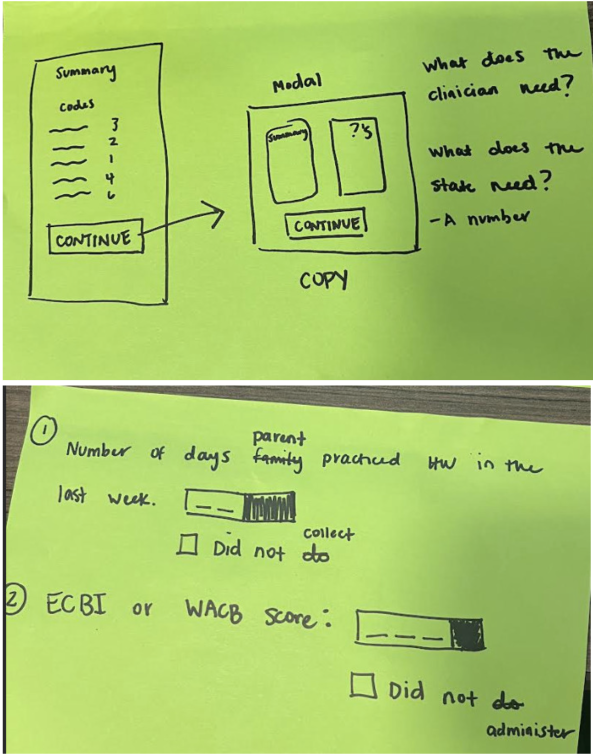 Summary
codes
3
2
1
4
6
CONTINUE
Modal
Summary
?'s
CONTINUE
COPY
What does the
clinician need?
What does the
state need?
- A number
① Number of days family parent practiced HW in the
last week.
Did not do collect
② ECBI or WACB score:
Did not do
administer